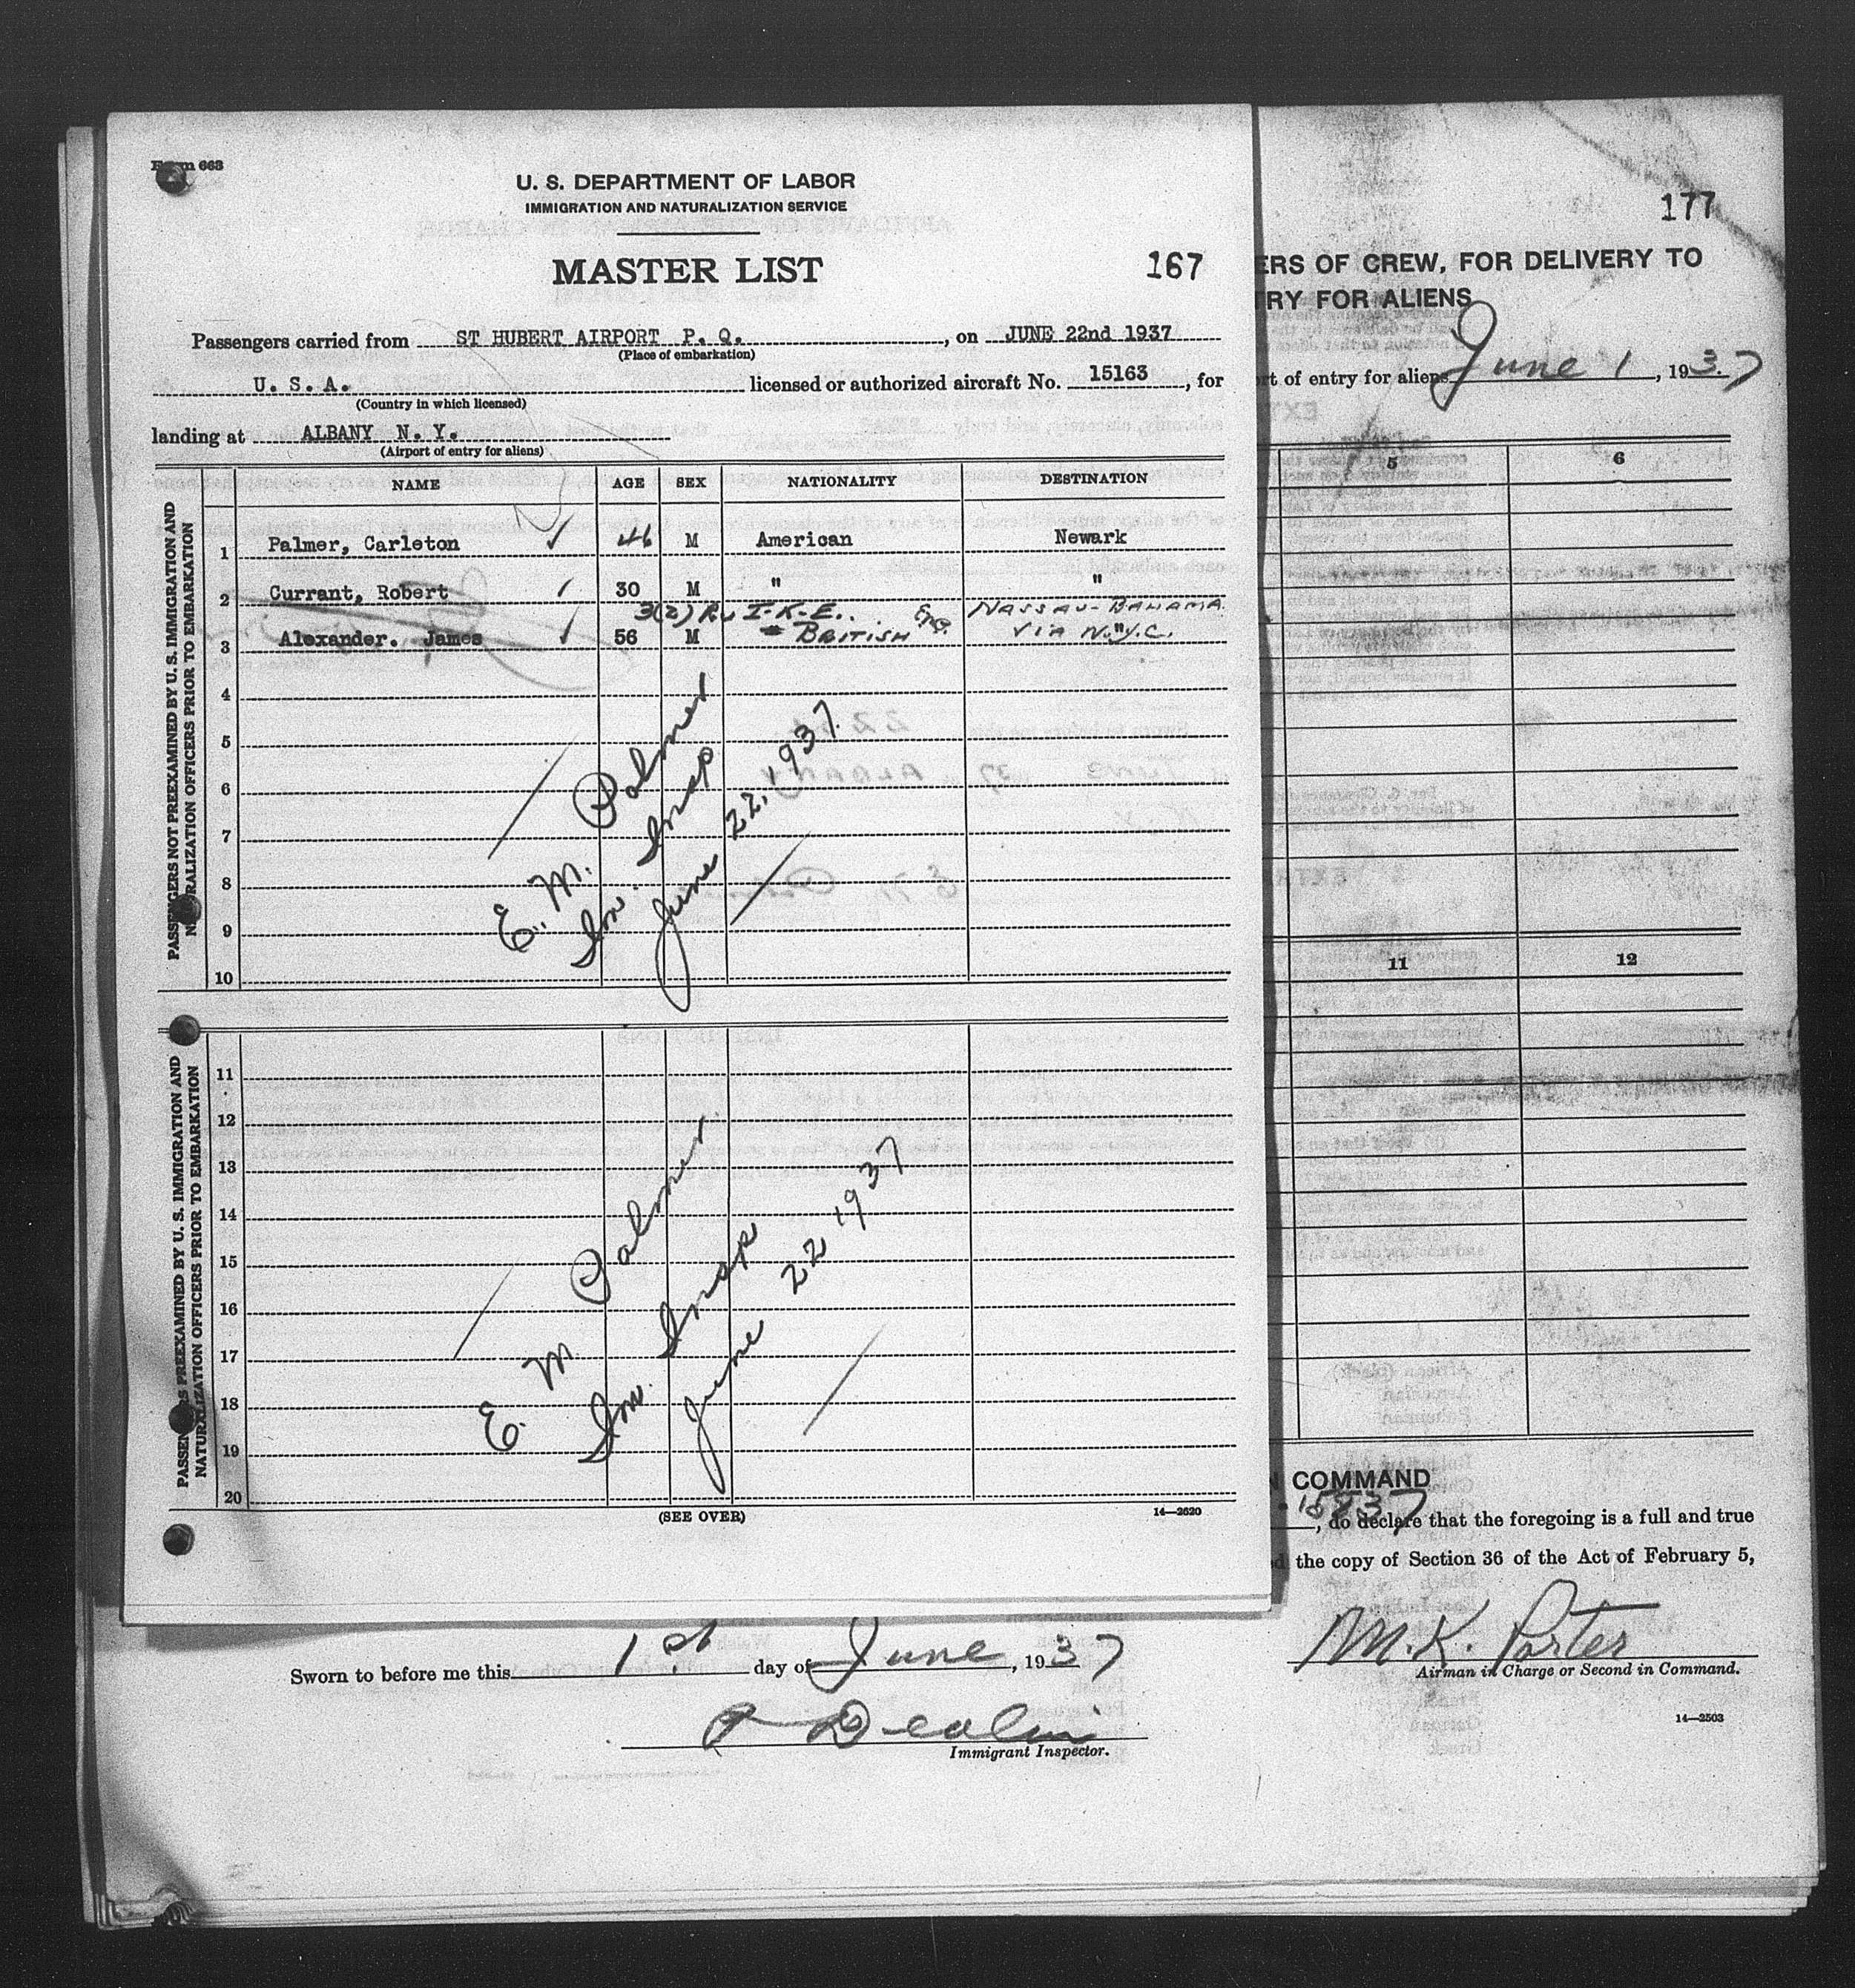 Form 663
U. S. DEPARTMENT OF LABOR
IMMIGRATION AND NATURALIZATION SERVICE
MASTER LIST
167
Passengers carried from ST HUBERT AIRPORT P. Q., on JUNE 22nd 1937
(Place of embarkation)
U. S. A. licensed or authorized aircraft No. 15163, for
(Country in which licensed)
landing at ALBANY N. Y.
(Airport of entry for aliens)
NAME AGE SEX NATIONALITY DESTINATION
PASSENGERS NOT PREEXAMINED BY U. S. IMMIGRATION AND
NATURALIZATION OFFICERS PRIOR TO EMBARKATION
1 Palmer, Carleton ✓ 46 M American Newark
2 Currant, Robert 30 M " "
3(2) R I-K-E.. Eng. NASSAU-BAHAMA
3 Alexander. James ✓ 56 M " BRITISH VIA N."Y.C.
4
5
6
7
8
9
10
E. M. Palmer
Im. Insp
June 22, 1937.
PASSENGERS PREEXAMINED BY U. S. IMMIGRATION AND
NATURALIZATION OFFICERS PRIOR TO EMBARKATION
11
12
13
14
15
16
17
18
19
20
E. M Palmer.
Im. Insp
June 22 1937
(SEE OVER)
14—2620
177
ERS OF CREW, FOR DELIVERY TO
RY FOR ALIENS
rt of entry for aliens June 1, 1937
5 6
11 12
N COMMAND
15837, do declare that the foregoing is a full and true
d the copy of Section 36 of the Act of February 5,
M. K. Porter
Airman in Charge or Second in Command.
14—2503
Sworn to before me this 1st day of June, 1937
Immigrant Inspector.